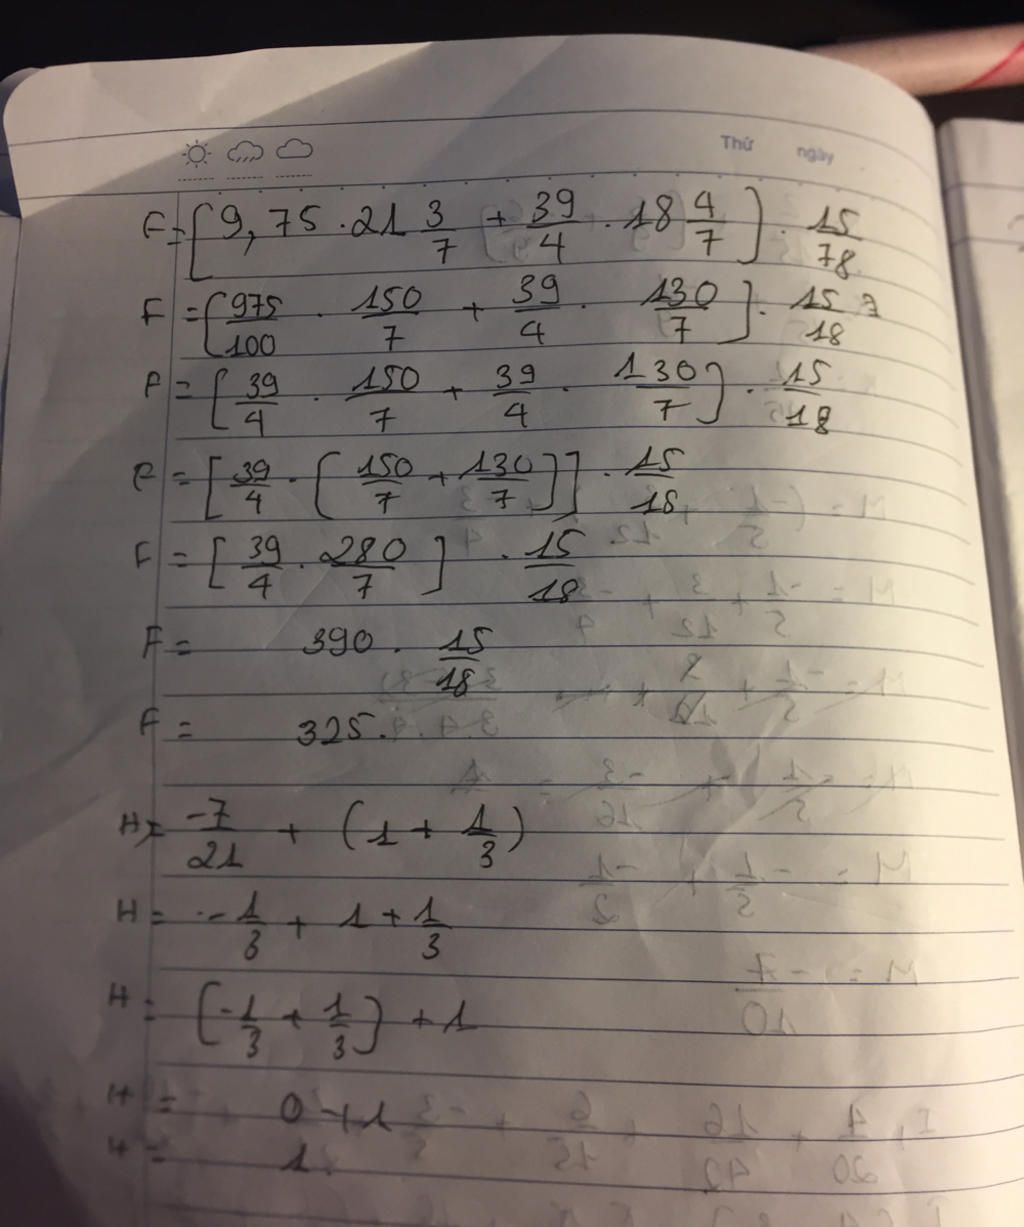 Thứ ngày
F = [9,75 . 21 3/7 + 39/4 . 18 4/7] . 15/78
F = [975/100 . 150/7 + 39/4 . 130/7] . 15/18
F = [39/4 . 150/7 + 39/4 . 130/7] . 15/18
F = [39/4 . [150/7 + 130/7]] . 15/18
F = [39/4 . 280/7] . 15/18
F = 390 . 15/18
F = 325.
H = -7/21 + (1 + 1/3)
H = -1/3 + 1 + 1/3
H = (-1/3 + 1/3) + 1
H = 0 + 1
H = 1.